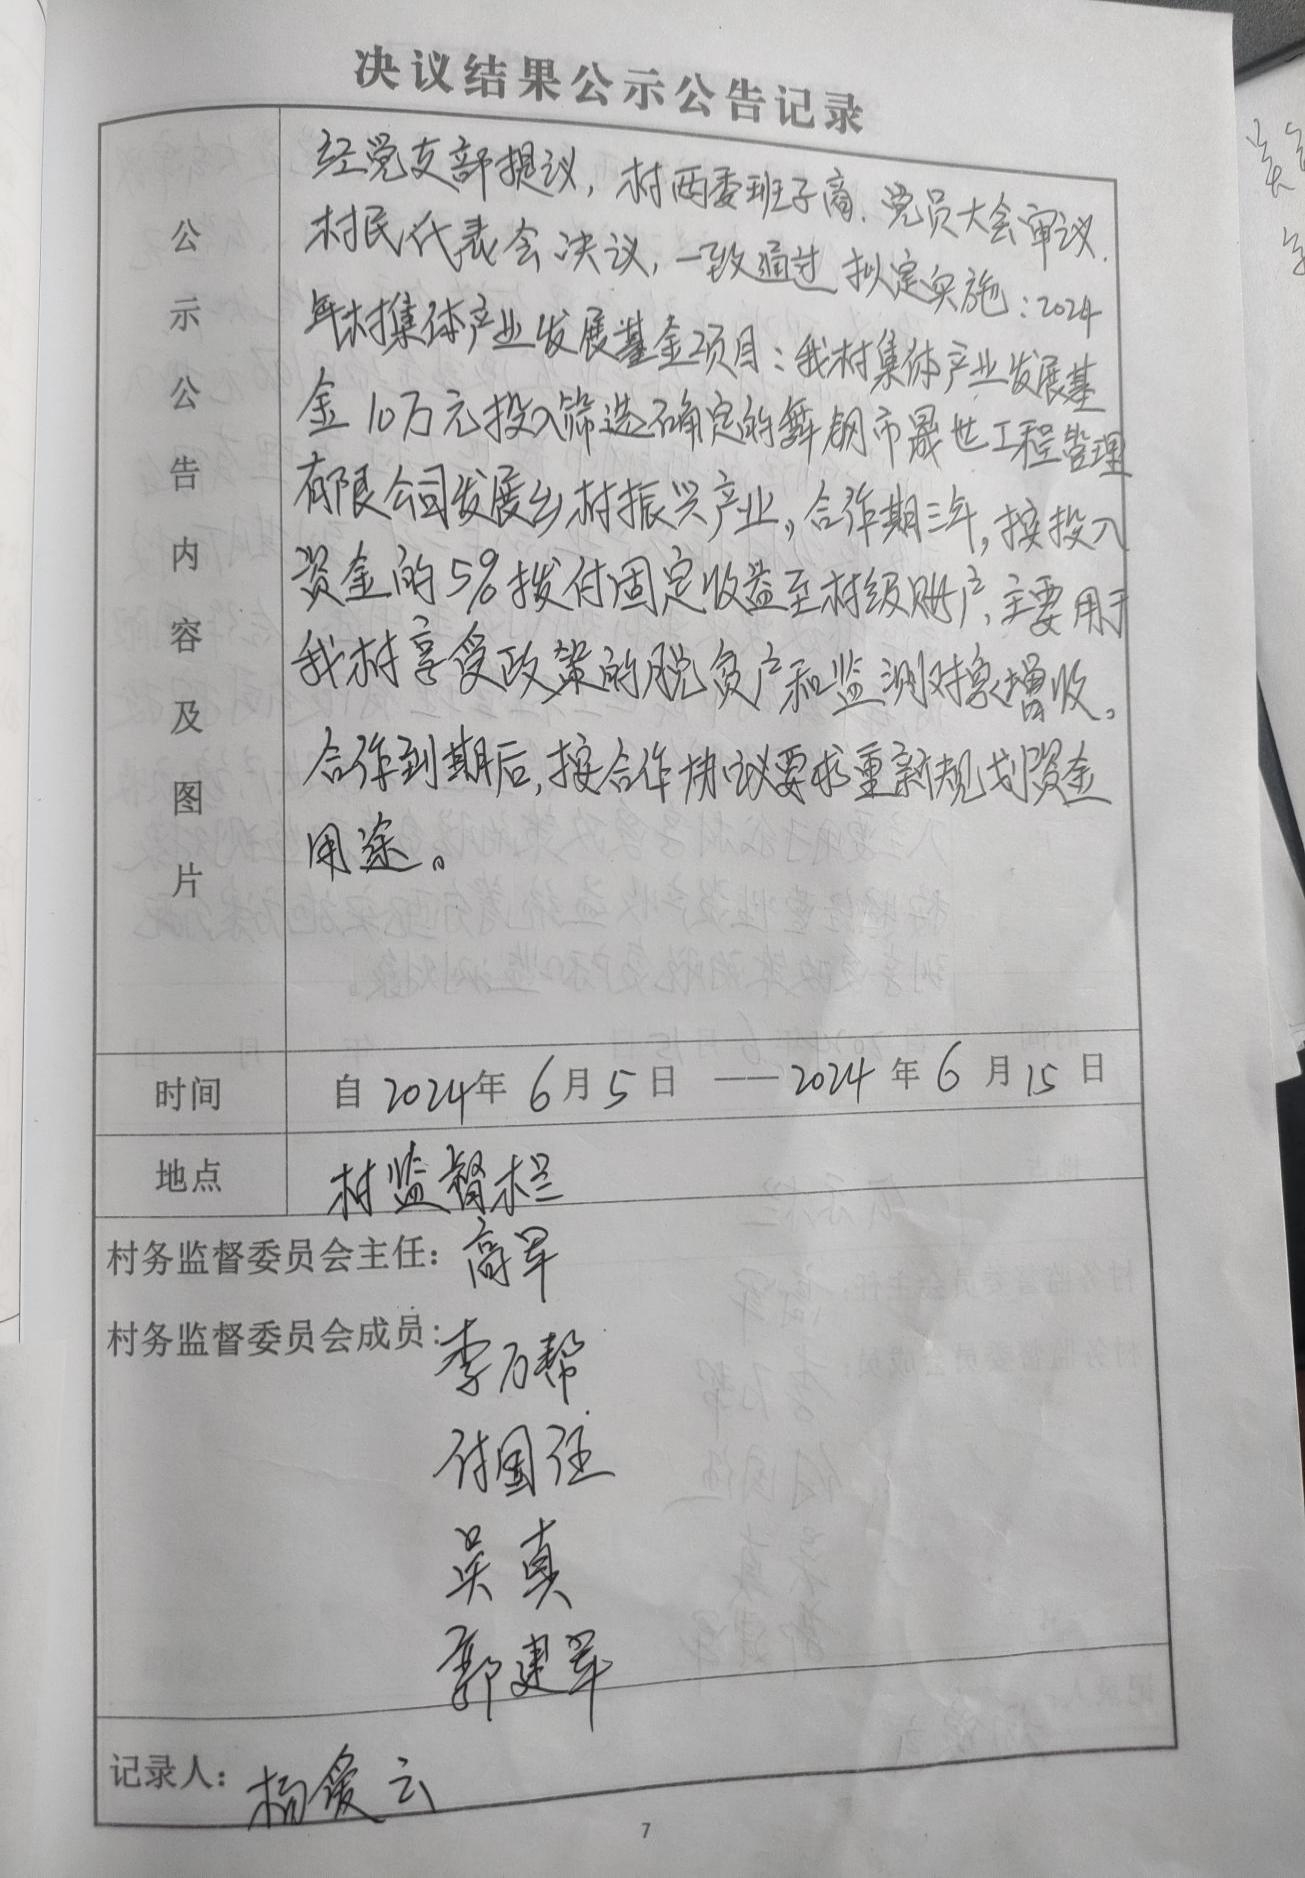 决议结果公示公告记录
公示公告内容及图片
经党支部提议，村两委班子商、党员大会审议、
村民代表会决议，一致通过拟定实施：2024
年村集体产业发展基金项目：我村集体产业发展基
金10万元投入筛选确定的舞钢市晟世工程管理
有限公司发展乡村振兴产业。合作期三年，按投入
资金的5%拨付固定收益至村级账户，主要用于
我村享受政策的脱贫户和监测对象增收。
合作到期后，按合作协议要求重新规划资金
用途。
时间 自2024年6月5日——2024年6月15日
地点 村监督栏
村务监督委员会主任：高军
村务监督委员会成员：李万帮
付国征
吴真
郭建军
记录人：杨爱云
7